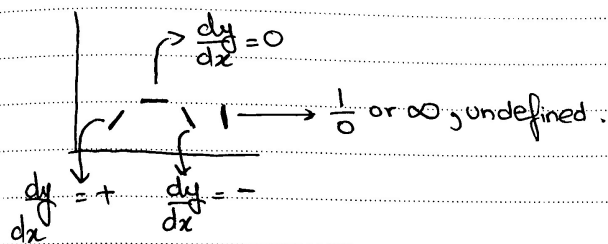 dy/dx = 0
1/0 or ∞, undefined.
dy/dx = +
dy/dx = -